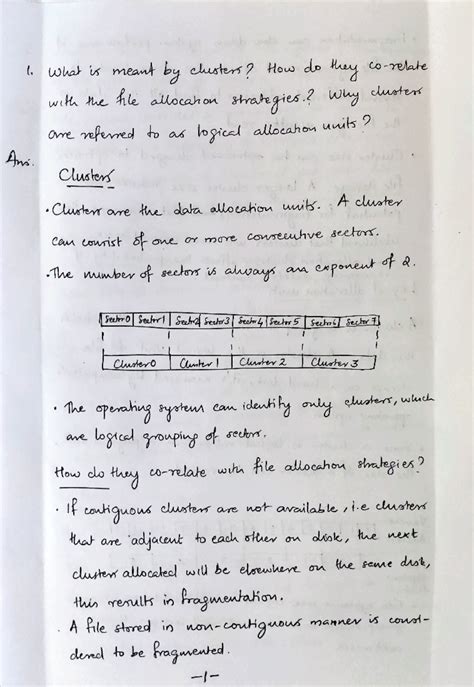 1. What is meant by clusters? How do they co-relate
with the file allocation strategies.? Why clusters
are referred to as logical allocation units?
Ans.
Clusters
• Clusters are the data allocation units. A cluster
can consist of one or more consecutive sectors.
• The number of sectors is always an exponent of 2.
Sector 0 Sector 1 Sector 2 Sector 3 Sector 4 Sector 5 Sector 6 Sector 7
Cluster 0 Cluster 1 Cluster 2 Cluster 3
• The operating system can identify only clusters, which
are logical grouping of sectors.
How do they co-relate with file allocation strategies?
• If contiguous clusters are not available, i.e clusters
that are adjacent to each other on disk, the next
cluster allocated will be elsewhere on the same disk,
this results in fragmentation.
• A file stored in non-contiguous manner is consi-
dered to be fragmented.
-1-